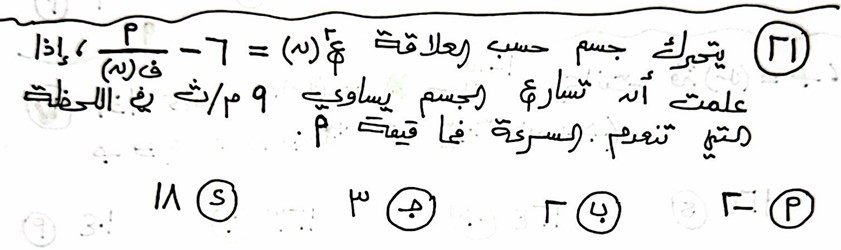 (٢١) يتحرك جسم حسب العلاقة ع٢(ن) = ٦ - م/ف(ن) ، إذا
علمت أن تسارع الجسم يساوي ٩ م/ث في اللحظة
التي تنعدم السرعة فما قيمة م .
م) -٢ ب) ٢ ج) ٣ د) ١٨